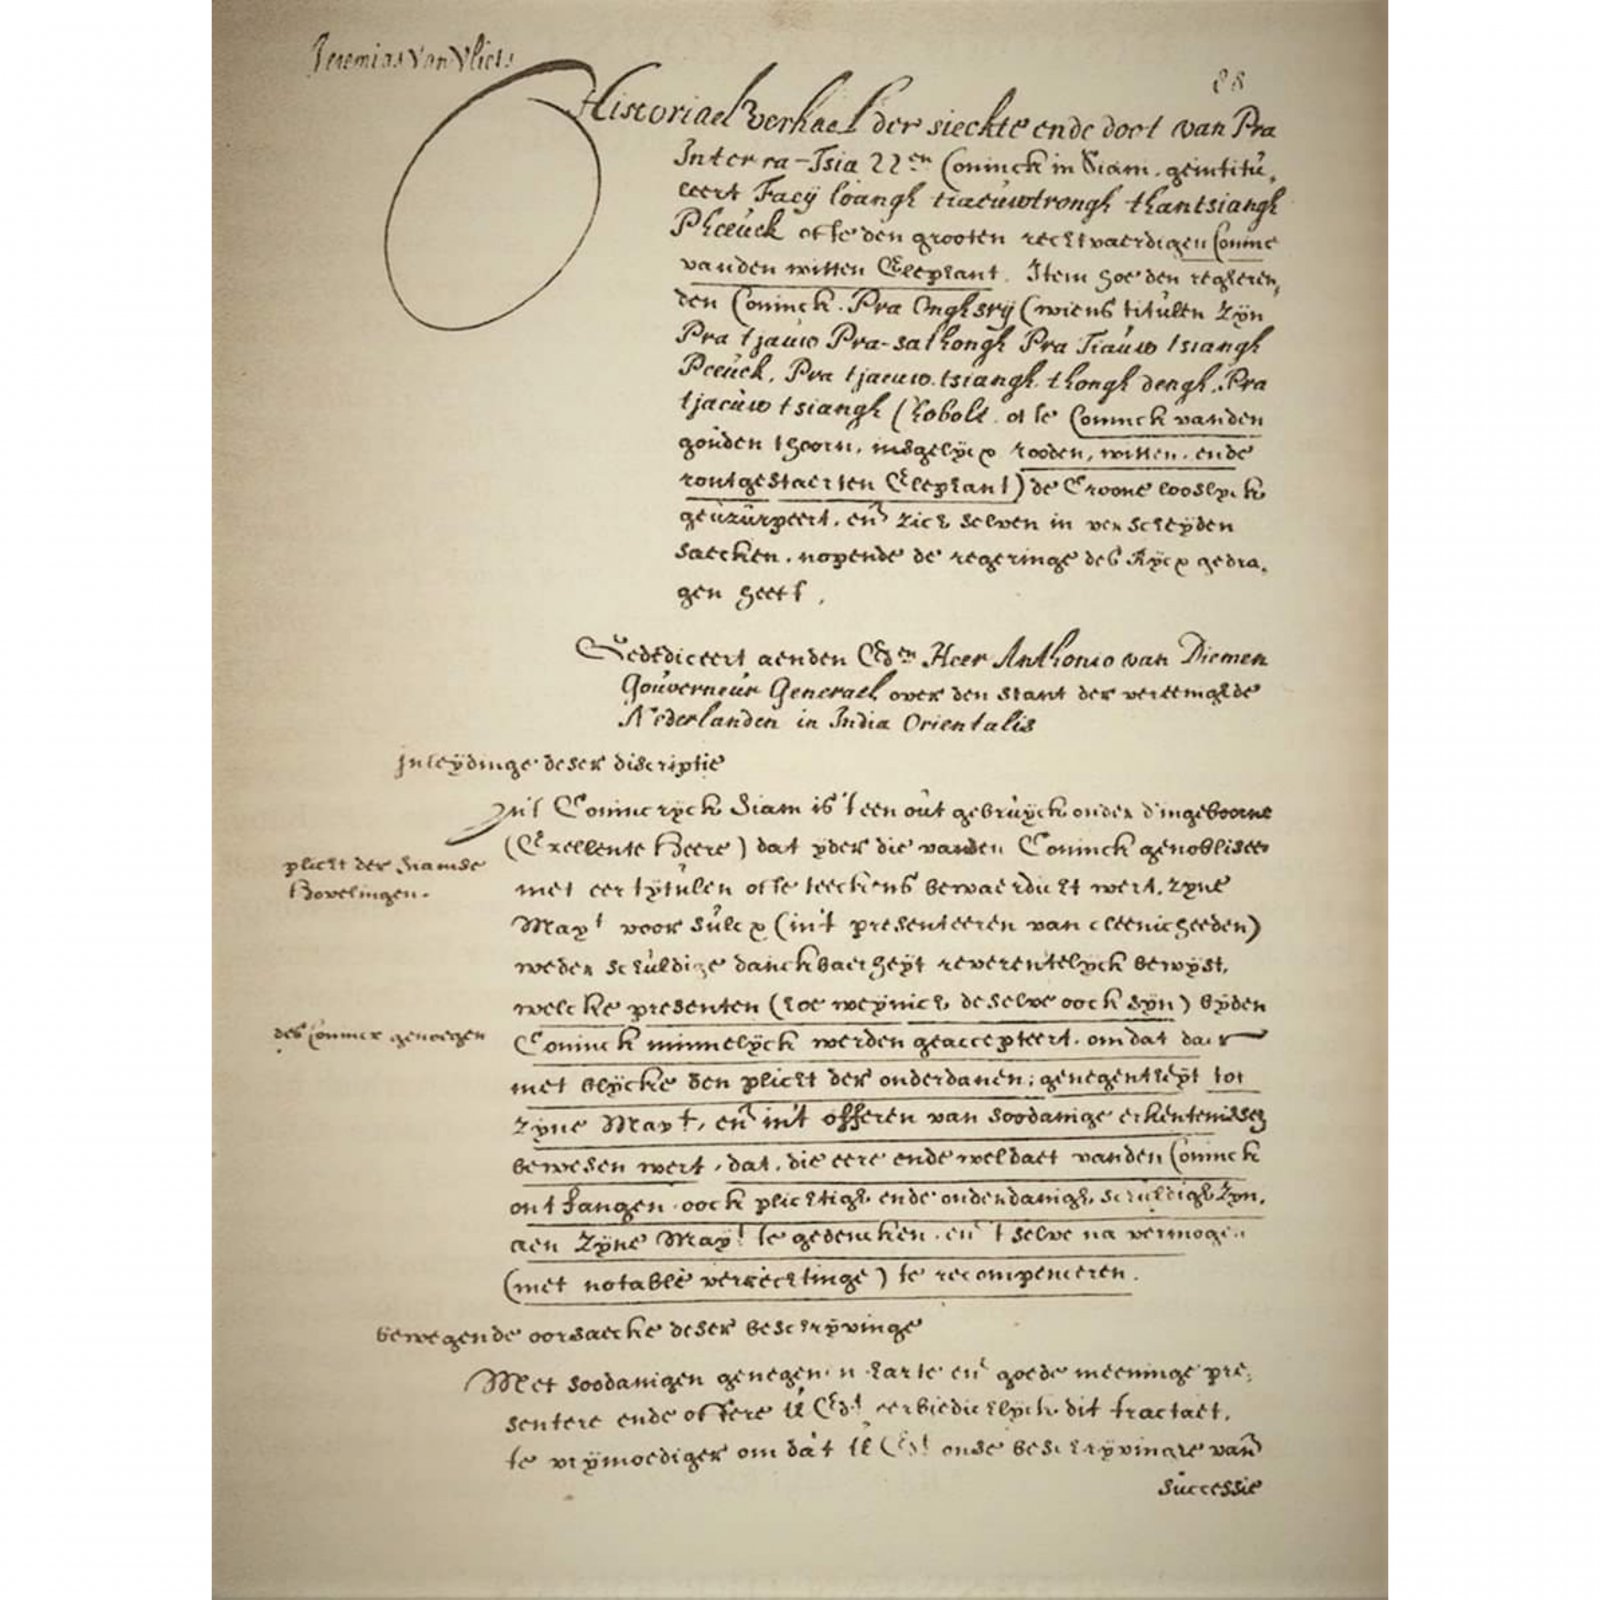 Jeremias van Vliets
88
Historiael verhael der sieckte ende doot van Pra
Interra-Tsia 22en Coninck in Siam. geintitu,
leert Faeÿ loangh tiaeúwtrongh thantsiangh
Pheeúck ofte den grooten rechtvaerdigen Coninc
vanden witten Elephant. Item hoe den regieren,
den Coninck. Pra Onghsrÿ (wiens titúlen zÿn
Pra tjaúw Pra-sathongh Pra Tiaúw tsiangh
Pceúck, Pra tjaeuw. tsiangh thongh dengh. Pra
tjaeúw tsiangh Chobolt. ofte Coninck vanden
goúden thoorn, insgelÿcx rooden, witten. ende
rontgestaerten Elephant) de Croone looslyck
geúzúrpeert. en zich selven in verscheÿden
saecken. nopende de regeringe des Rÿcx gedra,
gen heeft,
Gedediceert aenden Eden Heer Anthonio van Diemen
Goúverneúr Generael over den stant der vereenichde
Nederlanden in India Orientalis
Inleÿdinge deser discriptie
In't Coninckryck Siam is 't een oút gebrúÿck onder d'ingeboorne
(Excellente Heere) dat yder die vanden Coninck genobliseer
plicht der Siamse
Hovelingen.
met eertÿtúlen ofte teeckens bewaerdicht wert. zyne
Mayt voor súlcx (in't presenteeren van cleenicheeden)
weder schúldige danckbaerheÿt reverentelyck bewÿst,
welcke presenten (hoe weÿnich deselve oock sÿn) bÿden
des Conincx genoegen
Coninck minnelÿck werden geaccepteert. omdat daer
met blÿcke den plicht der onderdanen; genegentheÿt tot
zyne Mayt, en in't offeren van soodanige erkentenissen
bewesen wert, dat, die eere ende weldaet vanden Coninck
ontfangen. oock plichtigh ende onderdanigh schuldigh zyn,
aen zÿne Maÿt te gedencken. en 't selve na vermogen
(met notable verrechtinge) te recompenceren.
bewegende oorsaecke deser beschrÿvinge
Met soodanigen genegen harte en goede meeninge pre,
sentere ende offere U Edt eerbiedichlyck dit tractaet,
te vrÿmoediger om dat U Edt onse beschrÿvinge van
successie